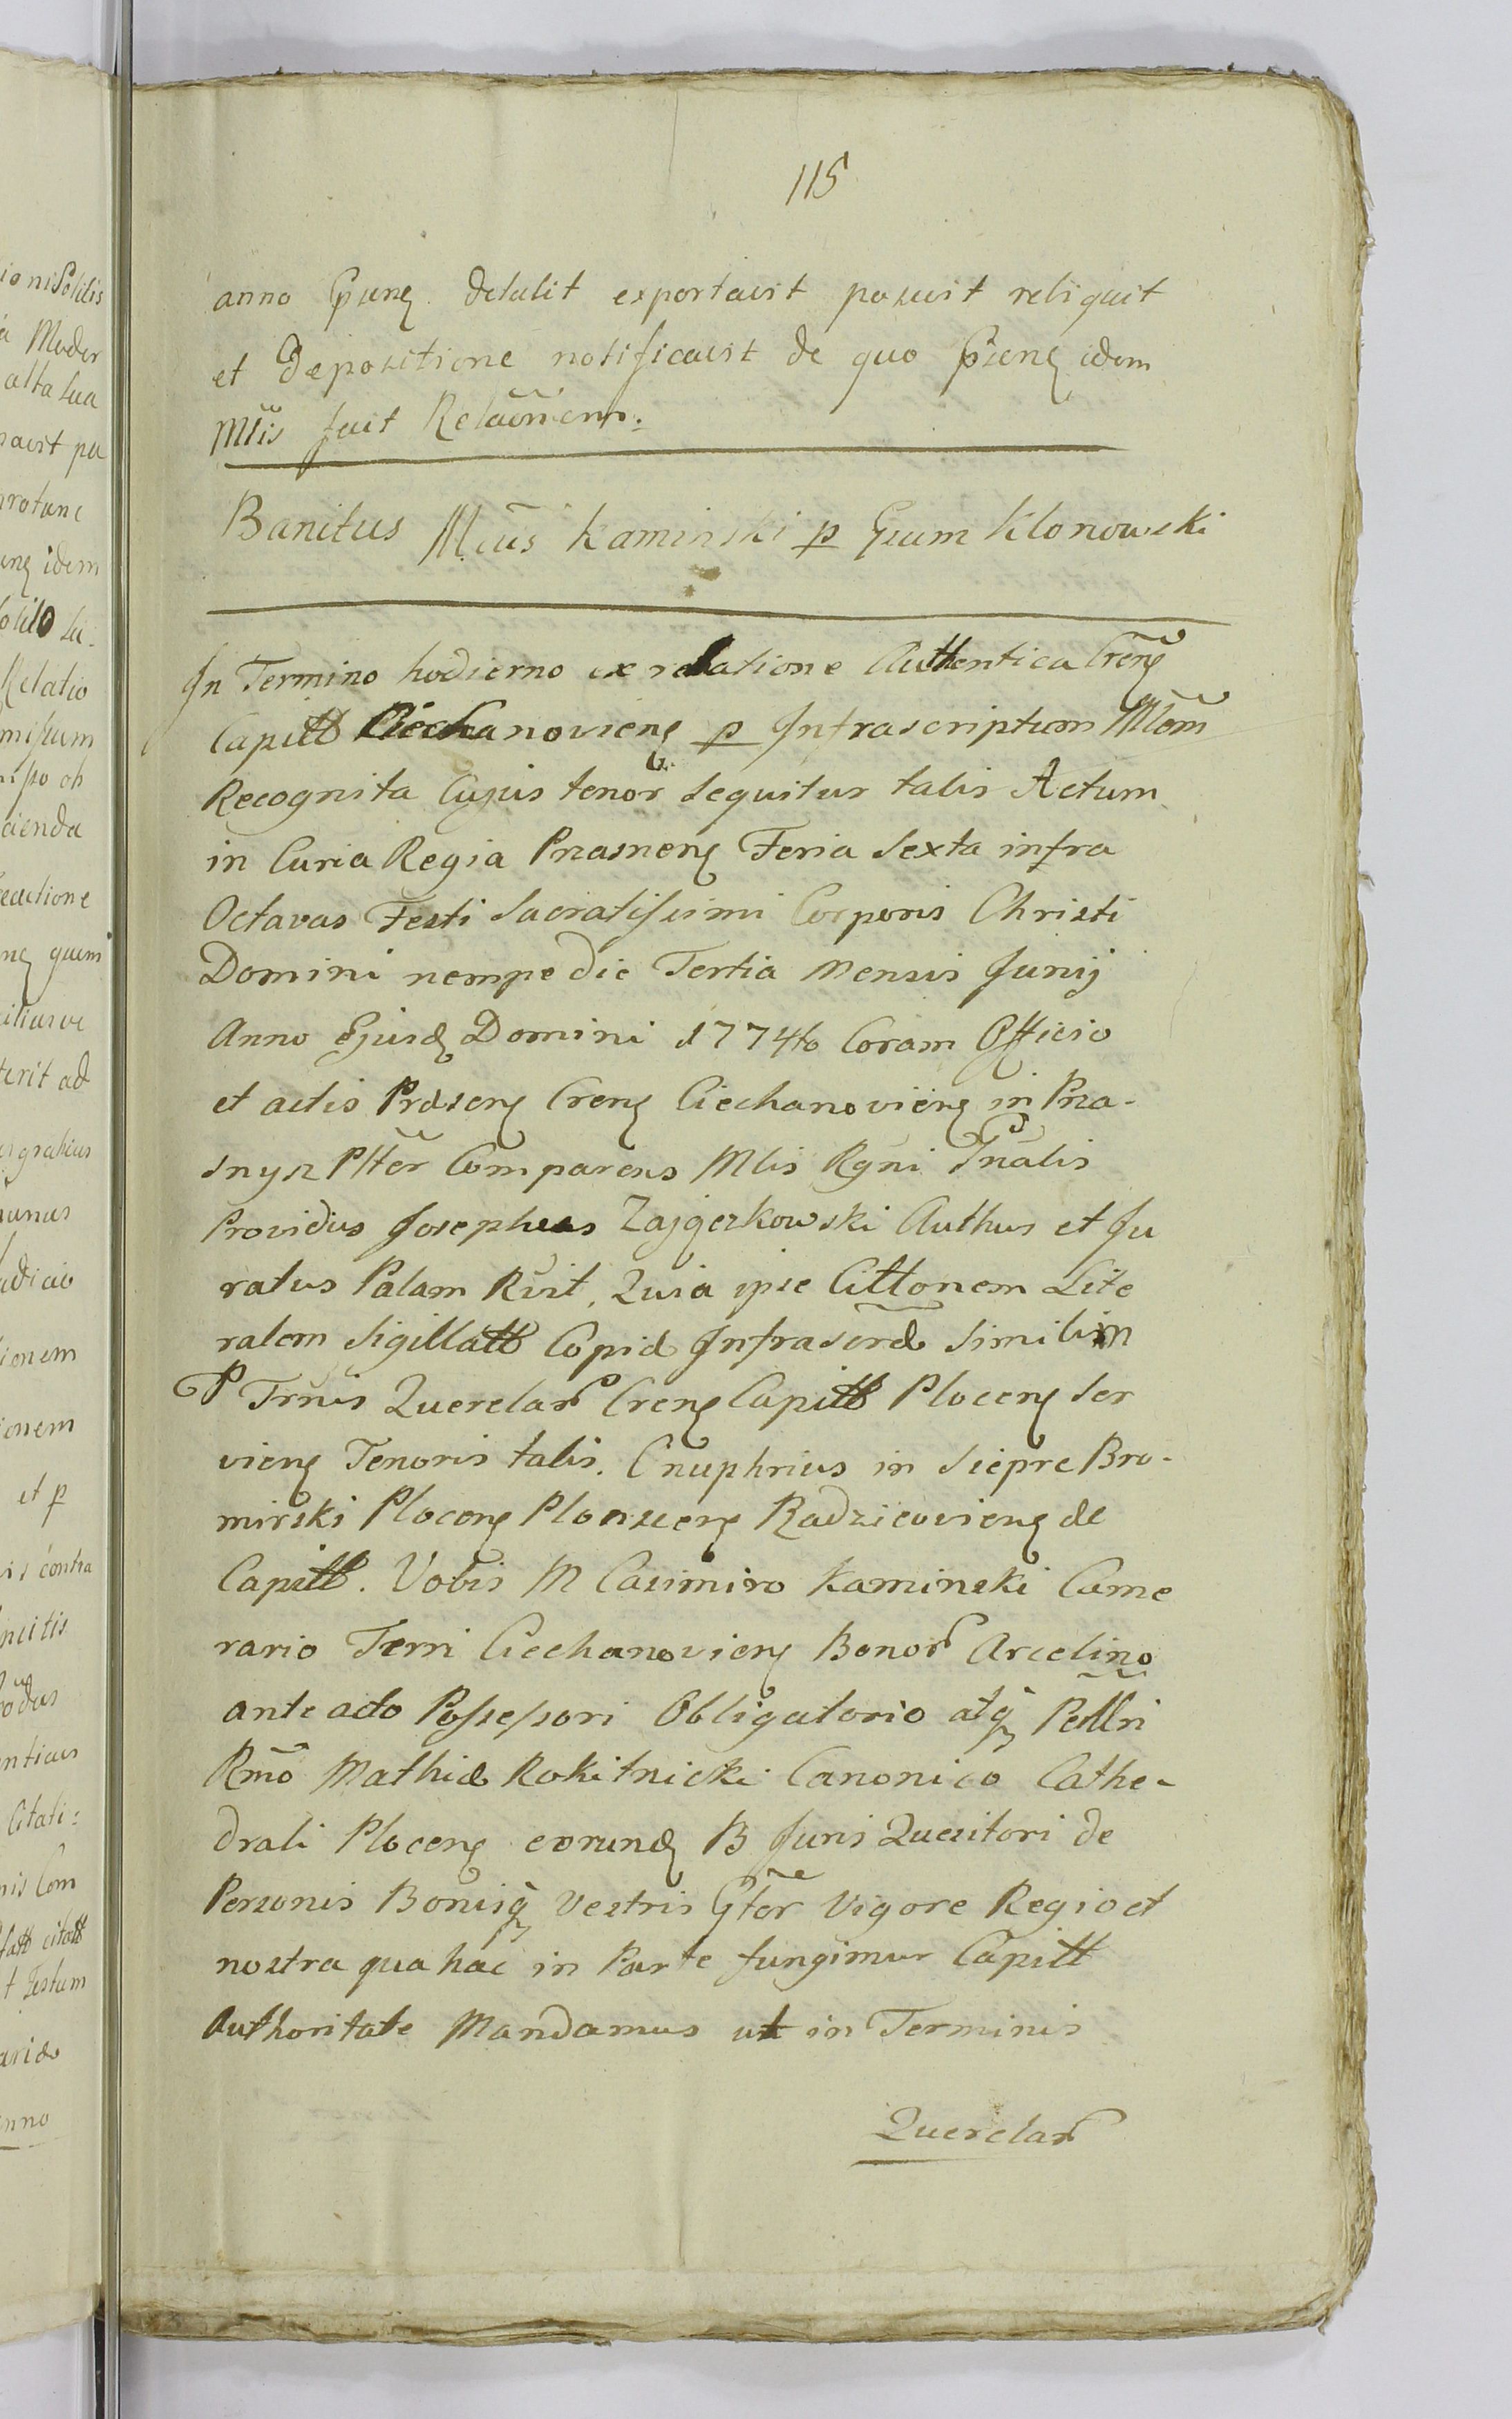 115
anno Psenꝫ detulit exportavit posuit reliquit
et Depositione notificavit de quo Psenꝫ idem
Mlis fuit Relaõnem.
Banitus Mcus Kaminski p Gsum Klonowski
In Termino hodierno ex relatione Authentica Crenꝫ
Capitt Ciechanovienꝫ p Infrascriptum Mlom
Recognita Cujus tenor sequitur talis Actum
in Curia Regia Prasnenꝫ Feria Sexta infra
Octavas Festi Sacratissimi Corporis Christi
Domini nempe die Tertia Mensis Junij
Anno Ejusdꝫ Domini 1774to Coram Officio
et actis Præsenꝫ Crenꝫ Ciechanovienꝫ in Pra-
snysz Plter Comparens Mlis Rgni Gnalis
Providus Josephus Zajgerkowski Authus et Ju
ratus Palam Rvit, Quia ipse Cittonem Lite
ralem Sigillatt Copiæ Infrascræ Similim
P Trnis Querelar Crenꝫ Capitt Plocenꝫ Ser
vienꝫ Tenoris talis. Onuphrius in Siepre Bro-
mirski Plocenꝫ Plonscenꝫ Radzieovienꝫ de
Capitt. Vobis M Casimiro Kaminski Came
rario Terri Ciechanovienꝫ Bonor Arcelino
ante acto Possessori Obligatorio atqꝫ Perllri
Rmo Mathiæ Rokitnicki Canonico Cathe-
drali Plocenꝫ eorundꝫ B Juris Quesitori de
Personis Bonisqꝫ Vestris Gter Vigore Regio et
nostra qua hac in Parte fungimur Capitt
Authoritate Mandamus ut in Terminis
Querelar
ionisolilis
a Moder
alta sua
navit pu
protunc
enꝫ idem
Relatio
missum
cienda
nꝫ quem
terit ad
adicio
ionem
onem
et p
is contra
ncitis
nticus
Citati:
nis Com
t Testum
ariæ
anno